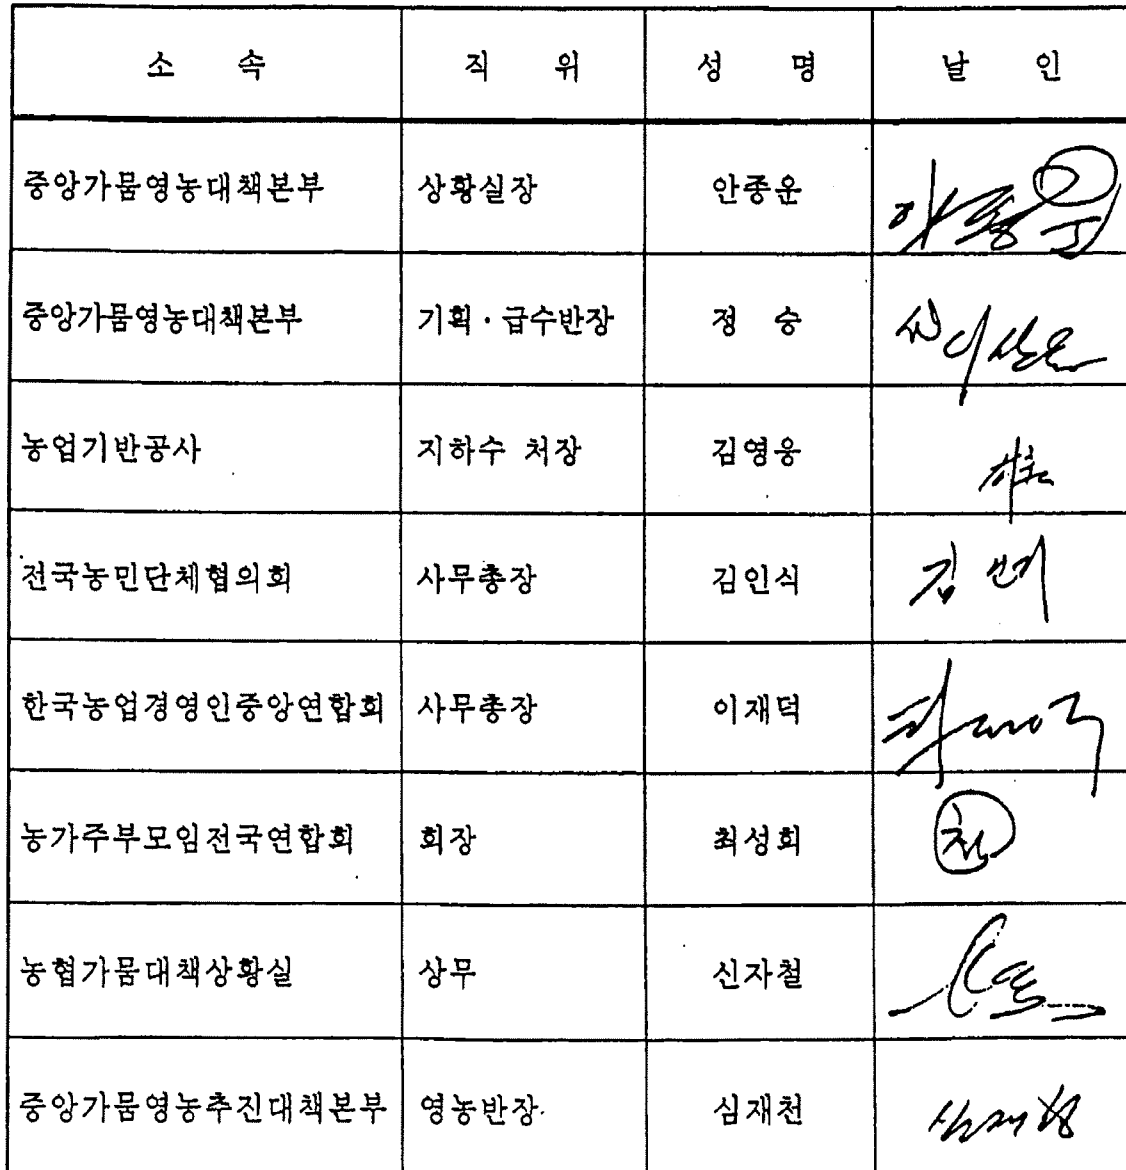 소 속 직 위 성 명 날 인
중앙가뭄영농대책본부 상황실장 안종운
중앙가뭄영농대책본부 기획·급수반장 정 승
농업기반공사 지하수 처장 김영웅
전국농민단체협의회 사무총장 김인식
한국농업경영인중앙연합회 사무총장 이재덕
농가주부모임전국연합회 회장 최성희
농협가뭄대책상황실 상무 신자철
중앙가뭄영농추진대책본부 영농반장 심재천